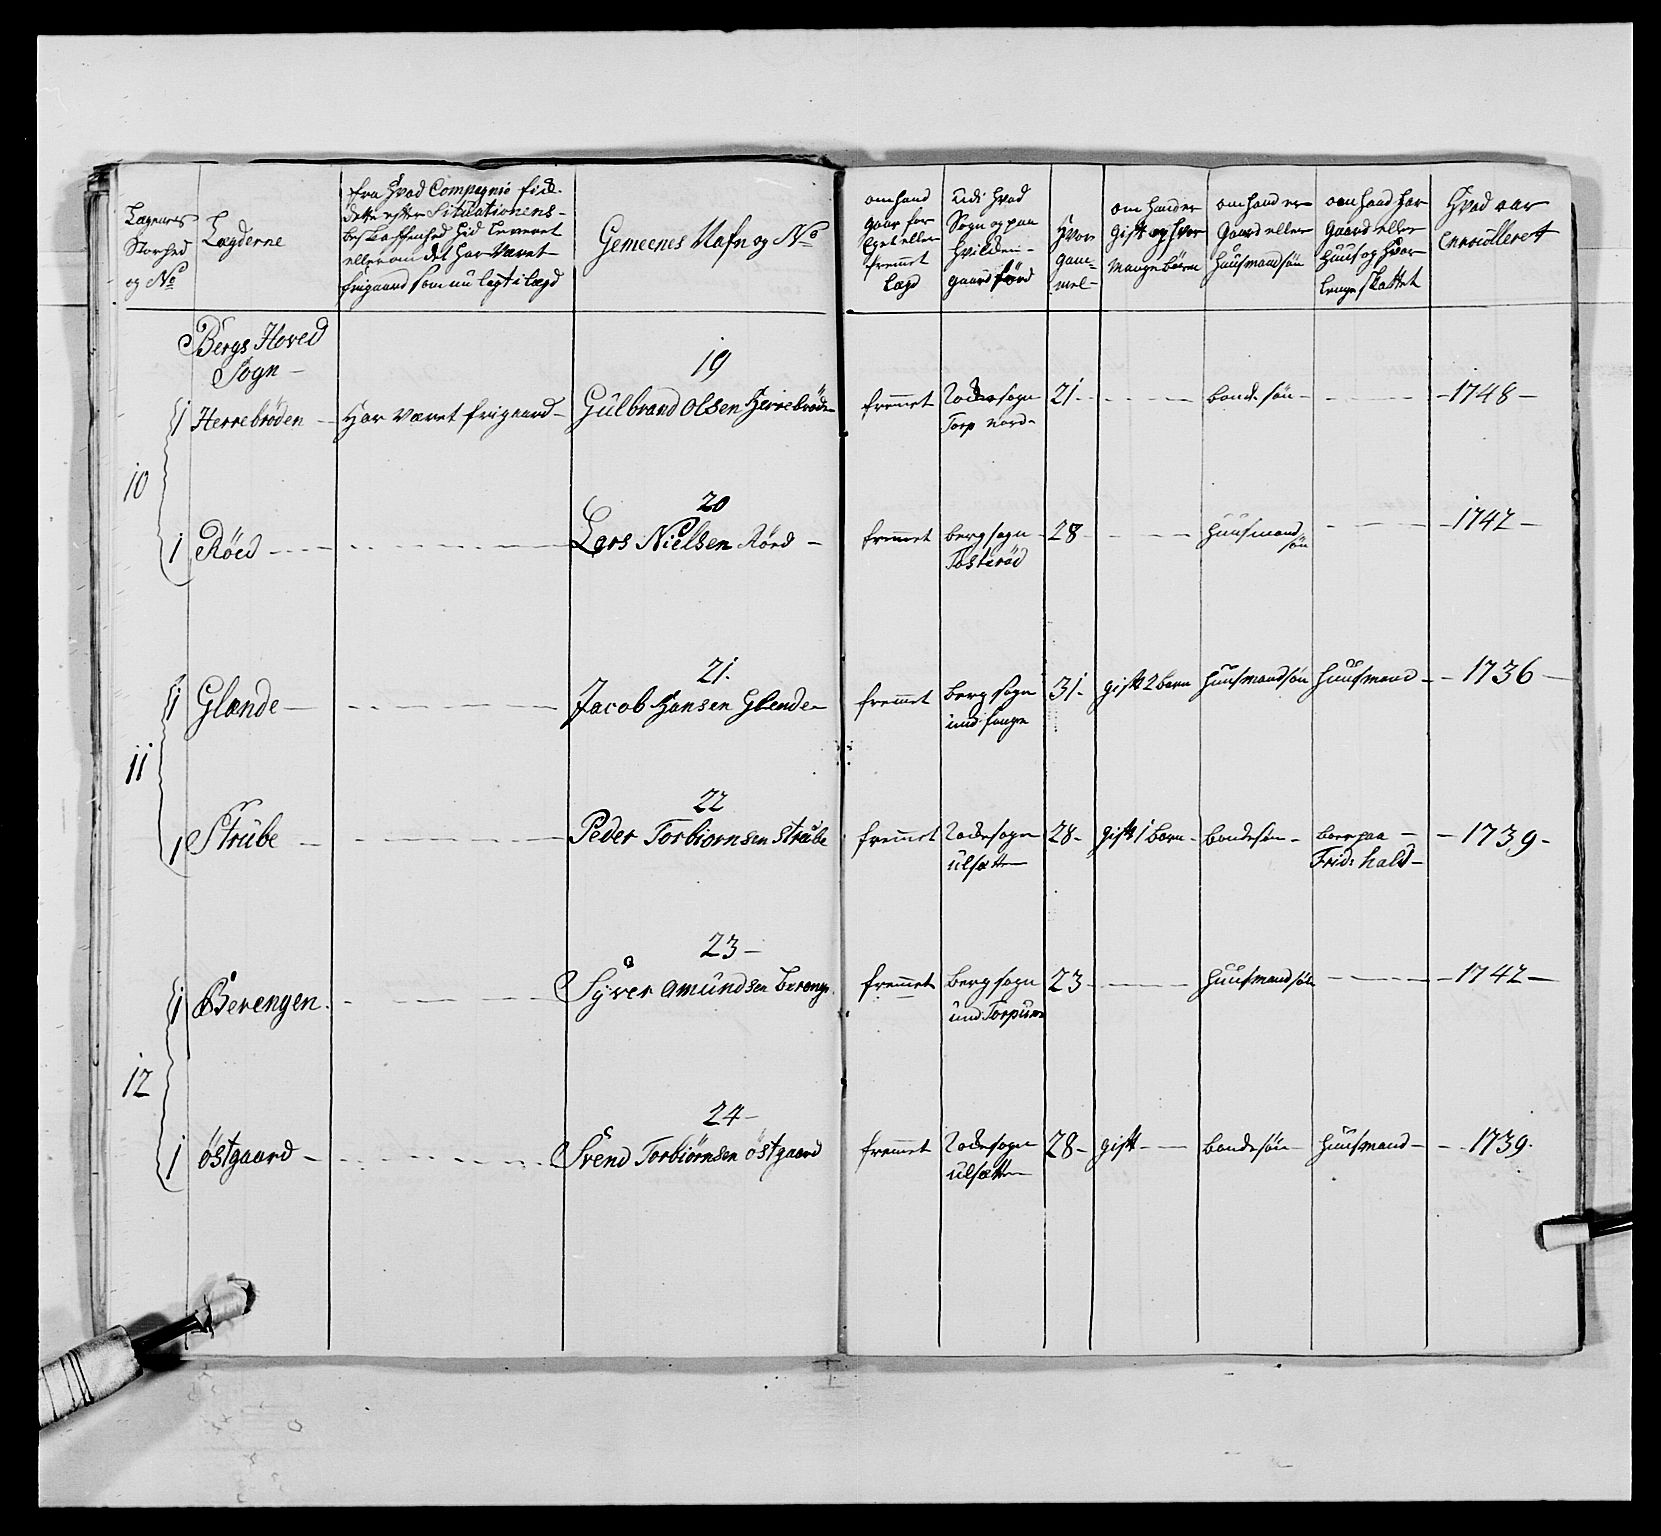 Lægernes Storhed og No
Lægderne
fra Hvad Compagnie hid dette efter Situationens beskaffenhed hid Leveret eller om det har Været frigaard som nu lagt i Lægd
Gemeenes Nafn og No
om hand gaar for Eget eller fremmet Lægd
udi hvad Sogn og paa hvilken gaard föed
Hvor gammel
om hand er gift og hvor mange börn
om hand er Gaard eller huusmandsön
om hand har Gaard eller huus og hvor lenge skattet
Hvad aar Enroulleret
Bergs Hoved
Sogn
10
1 Herrebröden Har Været frigaard 19 Gulbrand Olsen Herrebröden fremmet Idde sogn Torp nord 21 bonde sön 1748
1 Röed 20 Lars Nielsen Röed fremmet berg sogn Tosteröd 28 huusmandsön 1742
11
1 Glænde 21 Jacob Hansen Glende fremmet berg sogn 31 gift 2 börn huusmandsön huusmand 1736
1 Strübe 22 Peder Torbiornsen Strübe fremmet Idde sogn 28 gift 1 barn bondesön boer paa Fridr hald 1739
12
1 Berengen 23 Syver Amundsen fremmet berg sogn und Torpum 23 huusmandsön 1742
1 östgaard 24 Svend Torbiörnsen östgaard fremmet Idde sogn 28 gift bondesön huusmand 1739